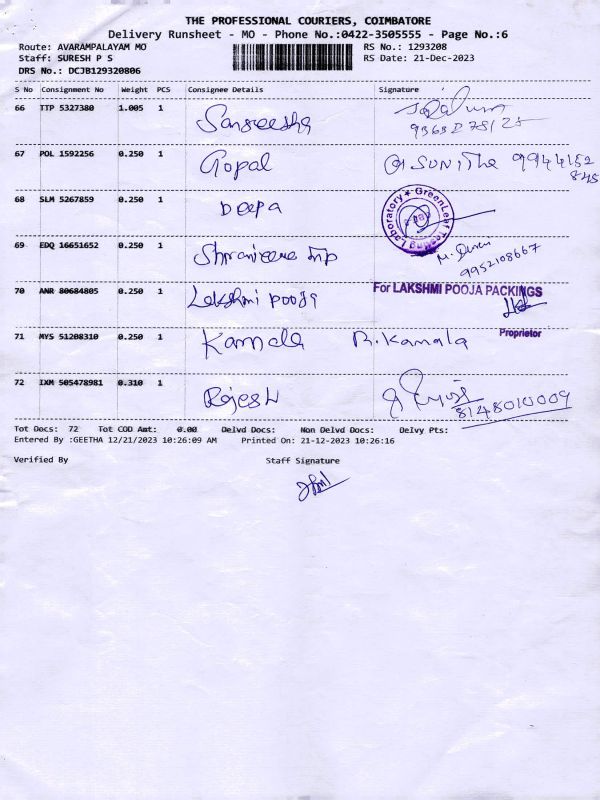 THE PROFESSIONAL COURIERS, COIMBATORE
Delivery Runsheet - MO - Phone No.:0422-3505555 - Page No.:6
Route: AVARAMPALAYAM MO RS No.: 1293208
Staff: SURESH P S RS Date: 21-Dec-2023
DRS No.: DCJB129320806
S No Consignment No Weight PCS Consignee Details Signature
66 TTP 5327380 1.005 1
67 POL 1592256 0.250 1 Gopal SUNITHA 9944152
845
68 SLM 5267859 0.250 1 Deepa
GreenLeaf Testing Laboratory
69 EDQ 16651652 0.250 1
9952108667
70 ANR 80684805 0.250 1 Lakshmi pooja For LAKSHMI POOJA PACKINGS
Proprietor
71 MYS 51208310 0.250 1 Kamala R. Kamala
72 IXM 505478981 0.310 1 Rajesh
8148010009
Tot Docs: 72 Tot COD Amt: 0.00 Delvd Docs: Non Delvd Docs: Delvy Pts:
Entered By :GEETHA 12/21/2023 10:26:09 AM Printed On: 21-12-2023 10:26:16
Verified By Staff Signature